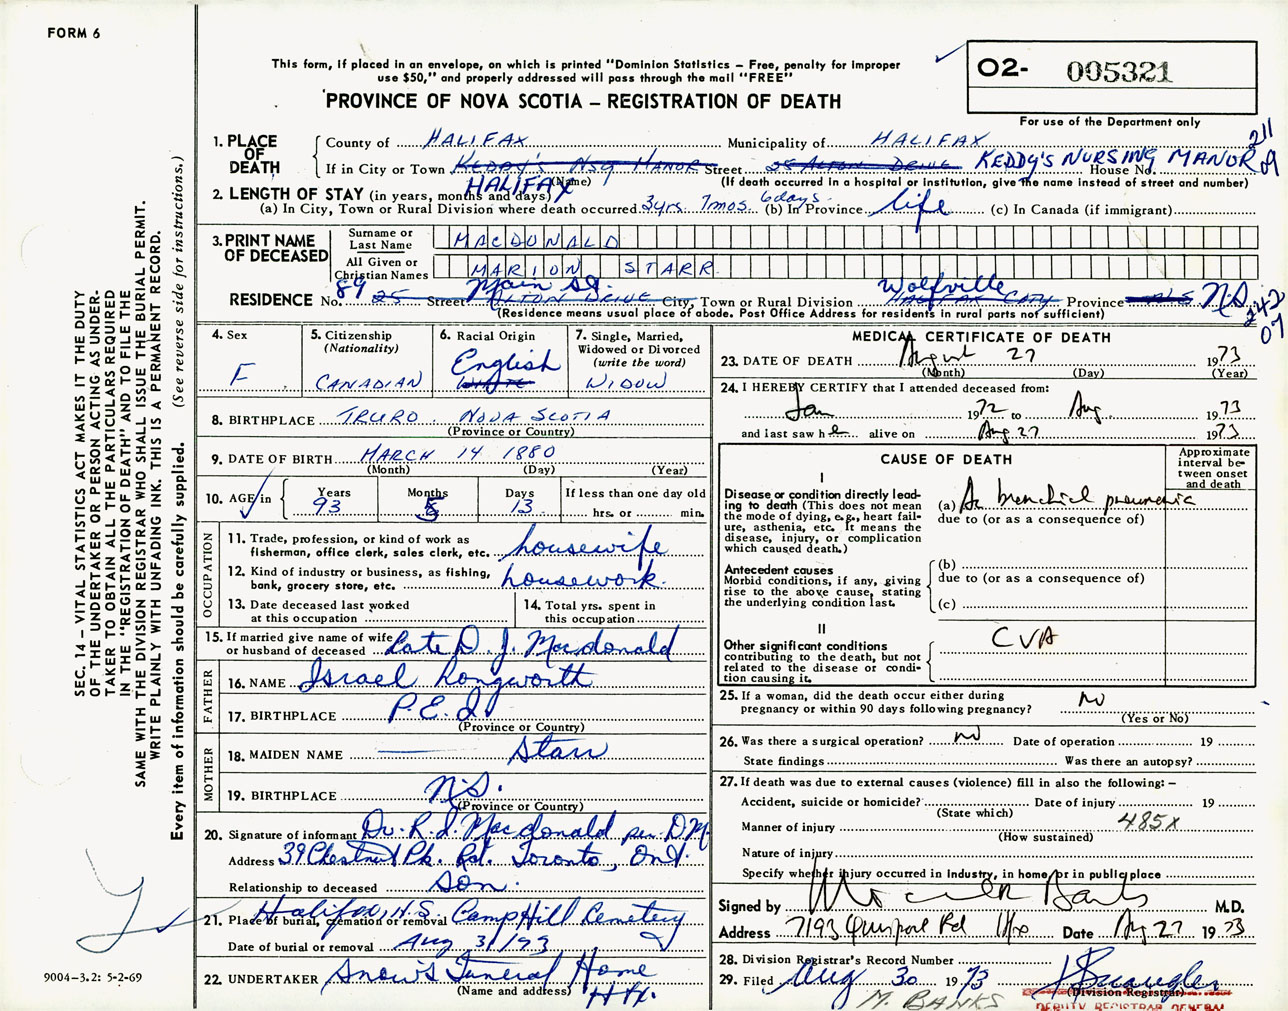 FORM 6
This form, if placed in an envelope, on which is printed "Dominion Statistics – Free, penalty for improper
use $50," and properly addressed will pass through the mail "FREE"
PROVINCE OF NOVA SCOTIA – REGISTRATION OF DEATH
O2- 005321
For use of the Department only
211
09
1. PLACE OF DEATH
County of HALIFAX Municipality of HALIFAX
If in City or Town KEDDY'S NSG MANOR Street 25 ALTON DRIVE KEDDY'S NURSING MANOR House No.
HALIFAX (Name) (If death occurred in a hospital or institution, give the name instead of street and number)
2. LENGTH OF STAY (in years, months and days)
(a) In City, Town or Rural Division where death occurred 3yrs 7mos 6days (b) In Province life (c) In Canada (if immigrant)
3. PRINT NAME OF DECEASED
Surname or Last Name MACDONALD
All Given or Christian Names MARION STARR
89 Main St. Wolfville N.S.
RESIDENCE No. 25 Street ALTON DRIVE City, Town or Rural Division HALIFAX CITY Province N.S.
(Residence means usual place of abode. Post Office Address for residents in rural parts not sufficient)
242
07
4. Sex F
5. Citizenship (Nationality) CANADIAN
6. Racial Origin English WHITE
7. Single, Married, Widowed or Divorced (write the word) WIDOW
8. BIRTHPLACE TRURO NOVA SCOTIA
(Province or Country)
9. DATE OF BIRTH MARCH 14 1880
(Month) (Day) (Year)
10. AGE in Years 93 Months 5 Days 13 If less than one day old hrs. or min.
OCCUPATION
11. Trade, profession, or kind of work as fisherman, office clerk, sales clerk, etc. housewife
12. Kind of industry or business, as fishing, bank, grocery store, etc. housework
13. Date deceased last worked at this occupation
14. Total yrs. spent in this occupation
15. If married give name of wife or husband of deceased Late D. J. Macdonald
FATHER
16. NAME Israel Longworth
17. BIRTHPLACE P.E.I.
(Province or Country)
MOTHER
18. MAIDEN NAME Starr
19. BIRTHPLACE N.S.
(Province or Country)
20. Signature of informant Dr. R. I. Macdonald per D.M.
Address 39 Chestnut Pk. Rd. Toronto, Ont.
Relationship to deceased Son.
21. Place of burial, cremation or removal Halifax, N.S. Camp Hill Cemetery
Date of burial or removal Aug 31/73
22. UNDERTAKER Snow's Funeral Home
(Name and address) Hfx.
MEDICAL CERTIFICATE OF DEATH
23. DATE OF DEATH August 27 1973
(Month) (Day) (Year)
24. I HEREBY CERTIFY that I attended deceased from:
Jan 1972 to Aug 1973
and last saw he alive on Aug 27 1973
CAUSE OF DEATH
Approximate interval between onset and death
I
Disease or condition directly leading to death (This does not mean the mode of dying, e.g., heart failure, asthenia, etc. It means the disease, injury, or complication which caused death.)
(a) bronchial pneumonia
due to (or as a consequence of)
Antecedent causes
Morbid conditions, if any, giving rise to the above cause, stating the underlying condition last.
(b)
due to (or as a consequence of)
(c)
II
Other significant conditions contributing to the death, but not related to the disease or condition causing it.
CVA
25. If a woman, did the death occur either during pregnancy or within 90 days following pregnancy? no
(Yes or No)
26. Was there a surgical operation? no Date of operation 19
State findings Was there an autopsy?
27. If death was due to external causes (violence) fill in also the following: –
Accident, suicide or homicide? Date of injury 19
(State which)
Manner of injury 485X
(How sustained)
Nature of injury
Specify whether injury occurred in industry, in home, or in public place
Signed by Banks M.D.
Address 7193 Quinpool Rd Hfx Date Aug 27 1973
28. Division Registrar's Record Number
29. Filed Aug 30 1973
(Division Registrar)
M. BANKS
DEPUTY REGISTRAR GENERAL
SEC. 14 – VITAL STATISTICS ACT MAKES IT THE DUTY
OF THE UNDERTAKER OR PERSON ACTING AS UNDER-
TAKER TO OBTAIN ALL THE PARTICULARS REQUIRED
IN THE "REGISTRATION OF DEATH" AND TO FILE THE
SAME WITH THE DIVISION REGISTRAR WHO SHALL ISSUE THE BURIAL PERMIT.
WRITE PLAINLY WITH UNFADING INK. THIS IS A PERMANENT RECORD.
Every item of information should be carefully supplied. (See reverse side for instructions.)
9004–3.2: 5-2-69